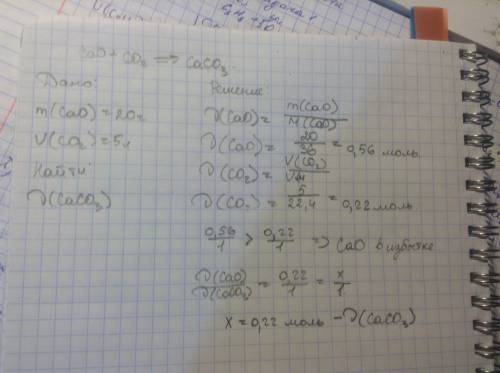 CaO + CO₂ => CaCO₃
Дано:
m(CaO) = 20г
V(CO₂) = 5л
Найти
ν(CaCO₃)
Решение:
ν(CaO) = m(CaO)/M(CaO)
ν(CaO) = 20/36 = 0,56 моль
ν(CO₂) = V(CO₂)/Vм
ν(CO₂) = 5/22,4 = 0,22 моль
0,56/1 > 0,22/1 => CaO в избытке
ν(CaO)/ν(CaCO₃) = 0,22/1 = x/1
x = 0,22 моль - ν(CaCO₃)